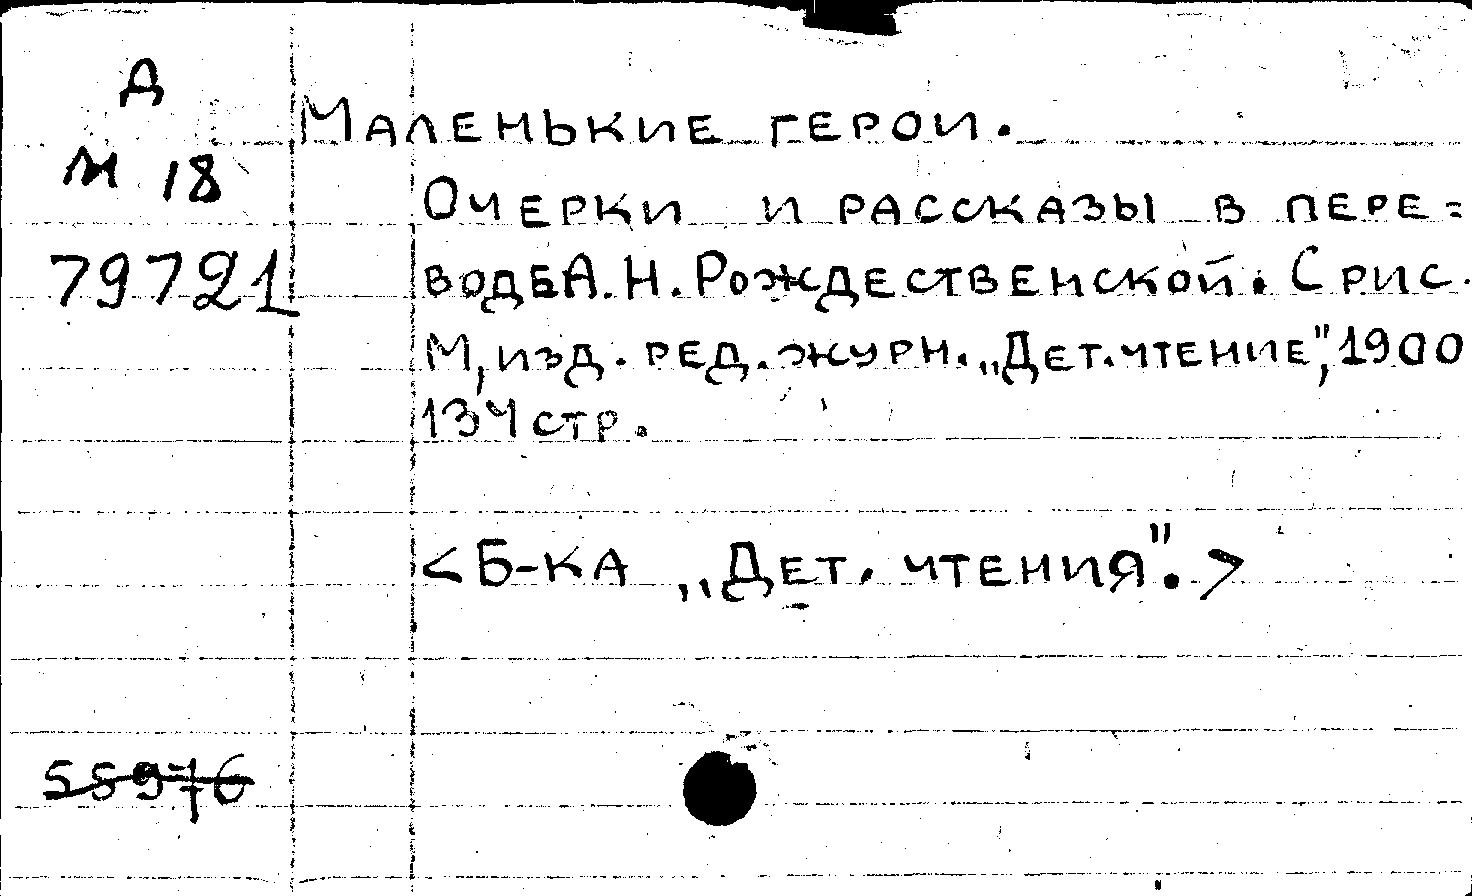 Д
Маленькие герои.
М 18
Очерки и рассказы в пере=
79721
водеА.Н.Рождественской. С рис.
М, изд. ред. журн. „Дет. чтение", 1900
134 стр.
<Б-ка „Дет. чтения".>
55976